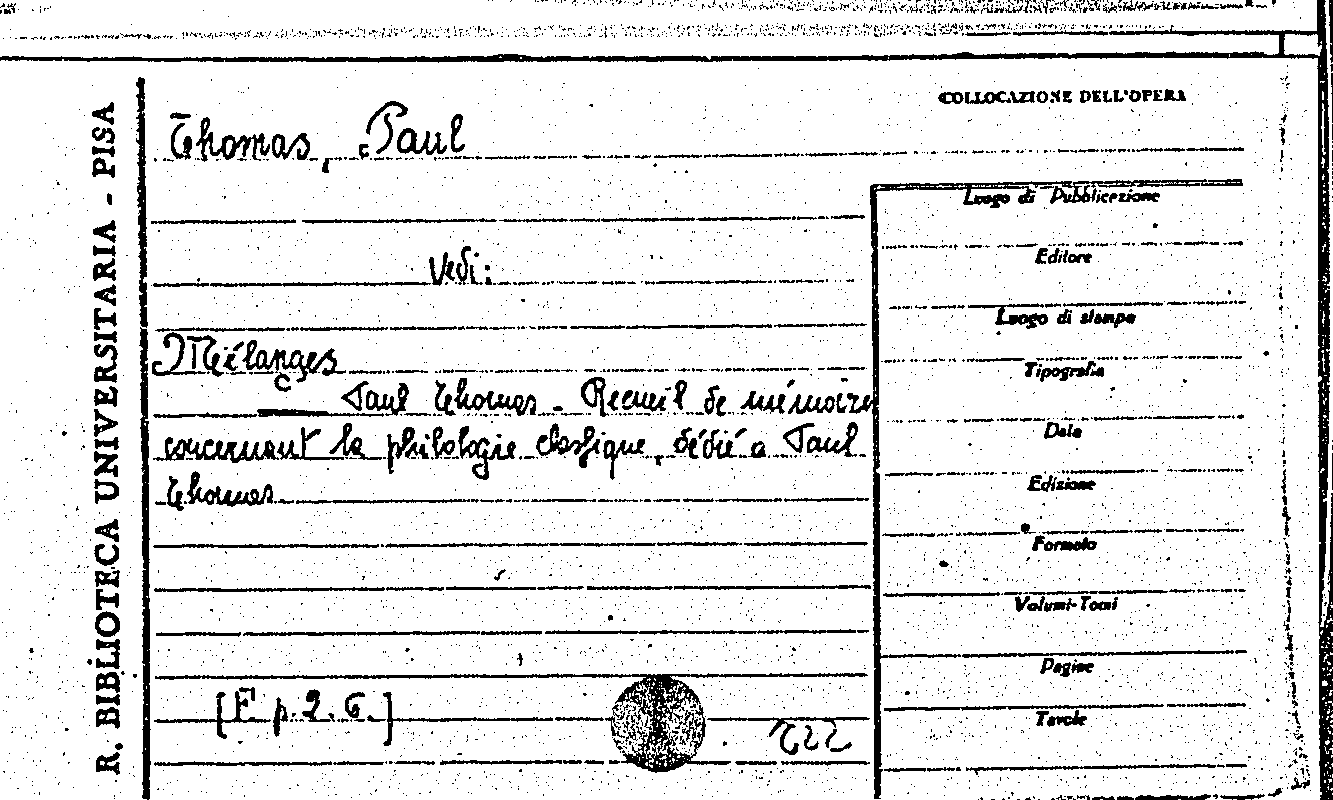 R. BIBLIOTECA UNIVERSITARIA - PISA
COLLOCAZIONE DELL'OPERA
Thomas, Paul
Vedi:
Mélanges
Paul Thomas - Recueil de mémoires
concernant la philologie classique, dédié a Paul
Thomas
[F p. 2. 6.]
Luogo di Pubblicazione
Editore
Luogo di stampa
Tipografia
Data
Edizione
Formato
Volumi-Tomi
Pagine
Tavole